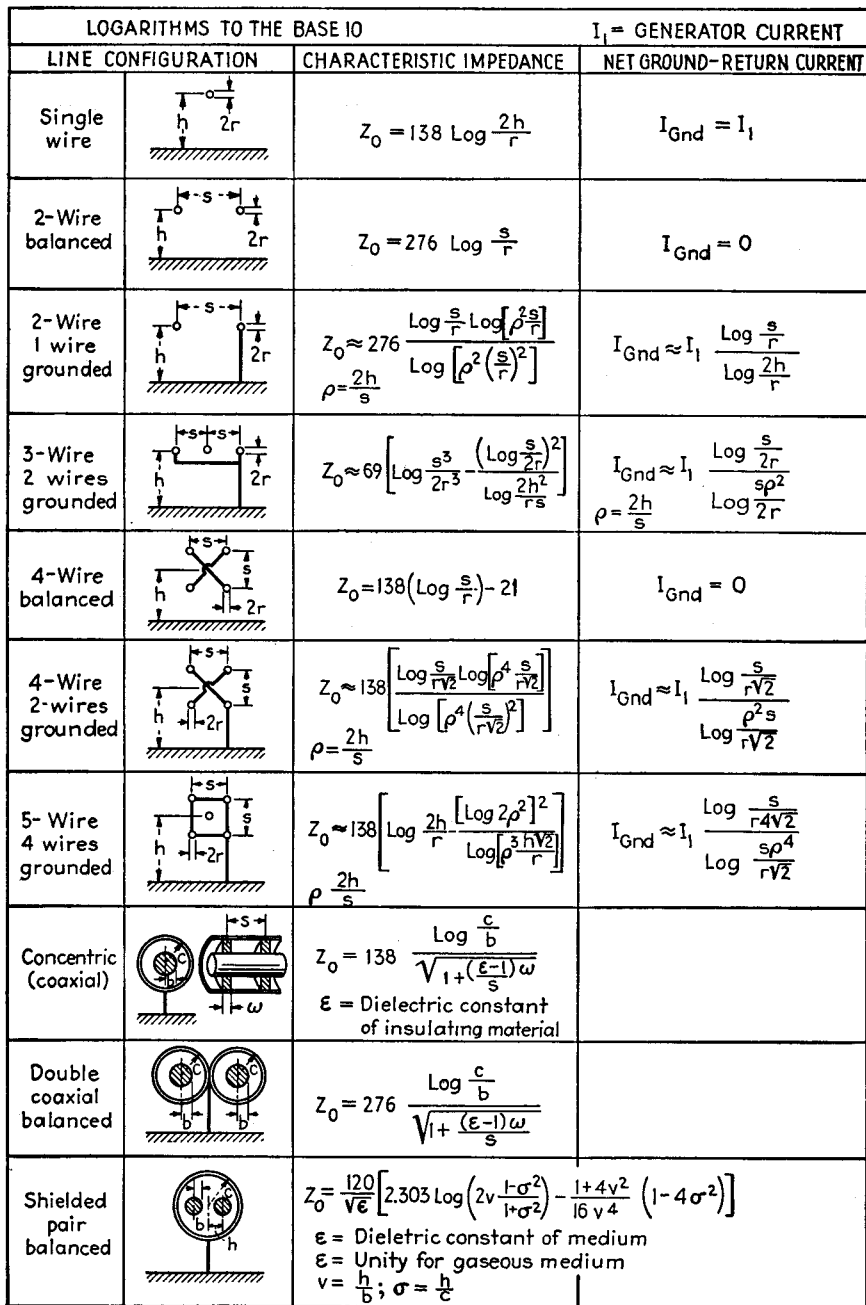 LOGARITHMS TO THE BASE 10 I₁ = GENERATOR CURRENT
LINE CONFIGURATION CHARACTERISTIC IMPEDANCE NET GROUND-RETURN CURRENT
Single wire
h 2r
Z₀ = 138 Log 2h/r
I_Gnd = I₁
2-Wire balanced
s h 2r
Z₀ = 276 Log s/r
I_Gnd = 0
2-Wire 1 wire grounded
s h 2r
Z₀ ≈ 276 (Log s/r Log[ρ² s/r]) / (Log [ρ² (s/r)²])
ρ = 2h/s
I_Gnd ≈ I₁ (Log s/r) / (Log 2h/r)
3-Wire 2 wires grounded
s s h 2r
Z₀ ≈ 69 [Log s³/2r³ - (Log s/2r)² / (Log 2h²/rs)]
I_Gnd ≈ I₁ (Log s/2r) / (Log sρ²/2r)
ρ = 2h/s
4-Wire balanced
s s h 2r
Z₀ = 138 (Log s/r) - 21
I_Gnd = 0
4-Wire 2-wires grounded
s s h 2r
Z₀ ≈ 138 [(Log s/r√2 Log[ρ⁴ s/r√2]) / (Log [ρ⁴ (s/r√2)²])]
ρ = 2h/s
I_Gnd ≈ I₁ (Log s/r√2) / (Log ρ²s/r√2)
5-Wire 4 wires grounded
s s h 2r
Z₀ ≈ 138 [Log 2h/r - [Log 2ρ²]² / (Log[ρ³ h√2/r])]
ρ 2h/s
I_Gnd ≈ I₁ (Log s/r4√2) / (Log sρ⁴/r√2)
Concentric (coaxial)
c b s ω
Z₀ = 138 (Log c/b) / √(1 + (ε-1)ω/s)
ε = Dielectric constant
of insulating material
Double coaxial balanced
c c b b
Z₀ = 276 (Log c/b) / √(1 + (ε-1)ω/s)
Shielded pair balanced
c b h
Z₀ = 120/√ε [2.303 Log (2v (1-σ²)/(1+σ²)) - (1+4v²)/(16v⁴) (1-4σ²)]
ε = Dieletric constant of medium
ε = Unity for gaseous medium
v = h/b; σ = h/c